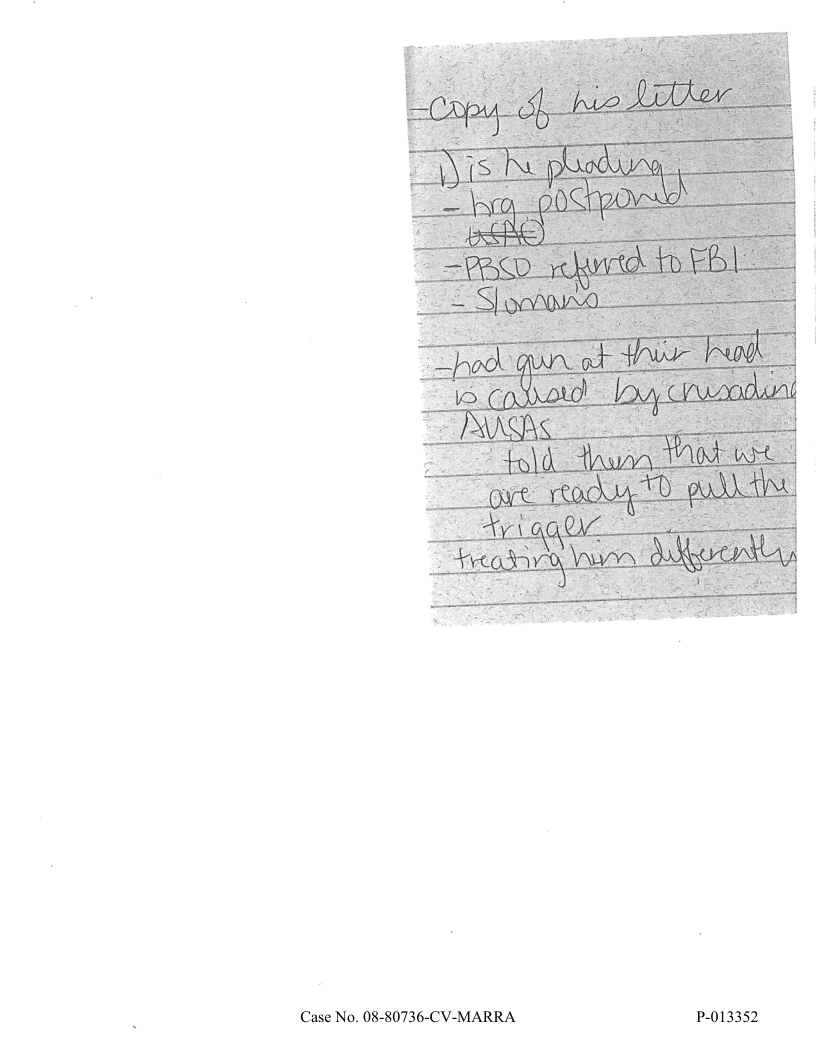 - Copy of his letter
1) is he pleading
- hrg postponed
USAO
- PBSO referred to FBI
- Sloman's
- had gun at their head
is caused by crusading
AUSAs
told them that we
are ready to pull the
trigger
treating him differently
Case No. 08-80736-CV-MARRA P-013352